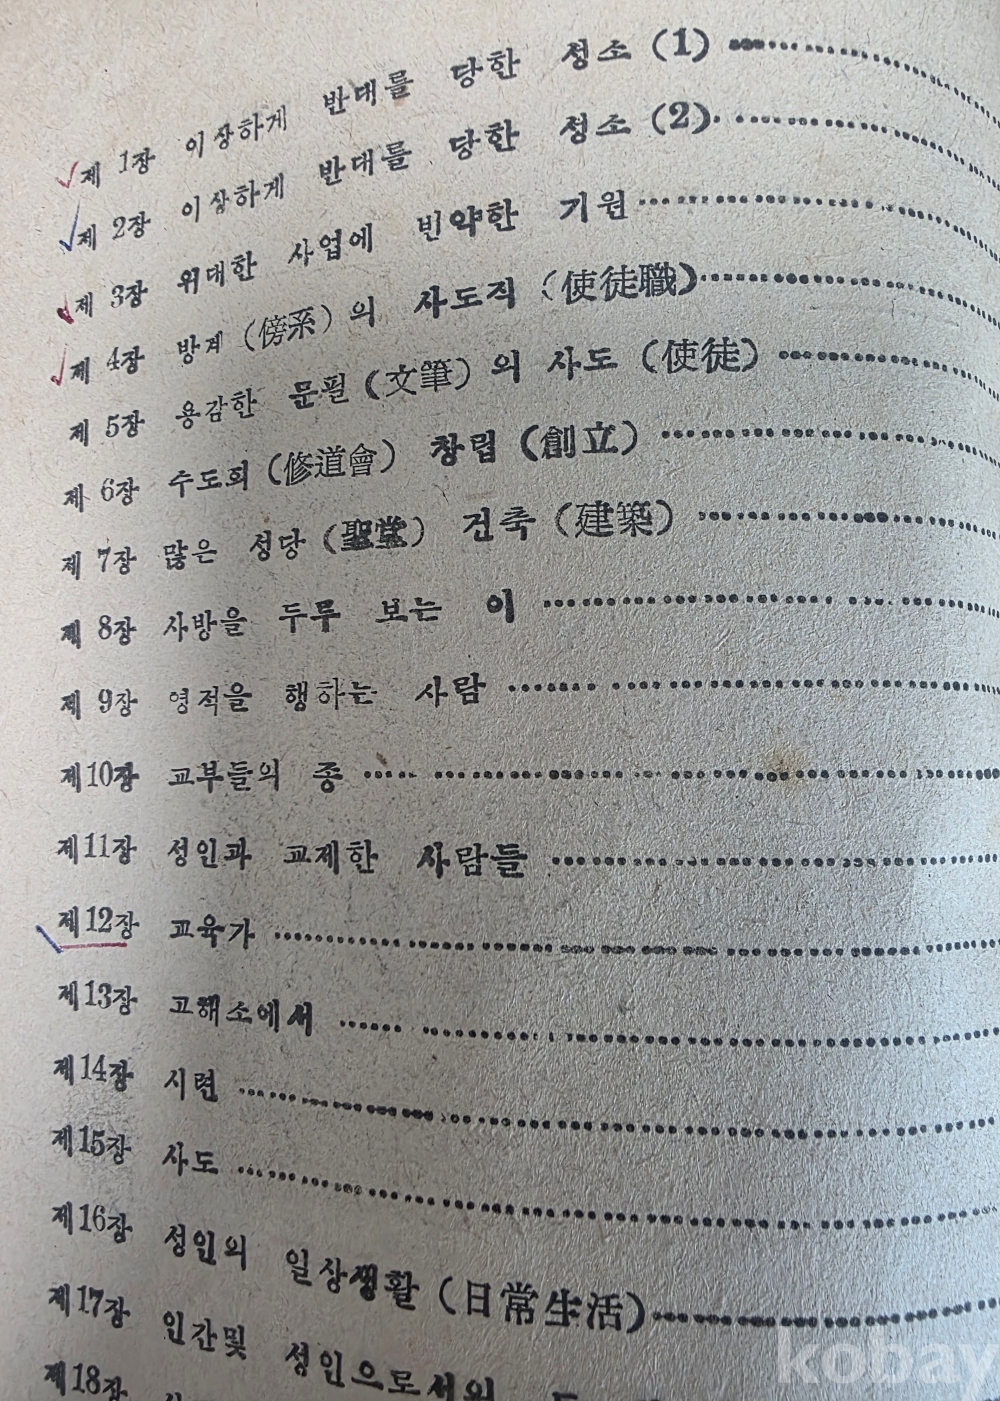 제 1장 이상하게 반대를 당한 성소 (1)
제 2장 이상하게 반대를 당한 성소 (2)
제 3장 위대한 사업에 빈약한 기원
제 4장 방계 (傍系) 의 사도직 (使徒職)
제 5장 용감한 문필 (文筆) 의 사도 (使徒)
제 6장 수도회 (修道會) 창립 (創立)
제 7장 많은 성당 (聖堂) 건축 (建築)
제 8장 사방을 두루 보는 이
제 9장 영적을 행하는 사람
제10장 교부들의 종
제11장 성인과 교제한 사람들
제12장 교육가
제13장 고해소에서
제14장 시련
제15장 사도
제16장 성인의 일상생활 (日常生活)
제17장 인간및 성인으로서의
제18장
kobay